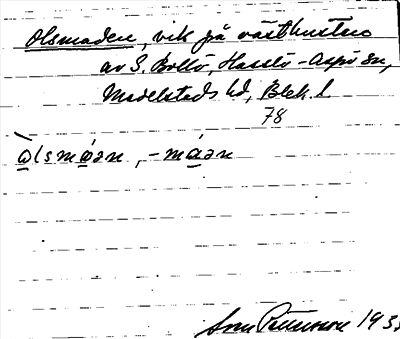 Olsmaden, vik på västkusten
av S. Bollö, Hasslö-Aspö sn,
Medelstads hd, Blek. l
78
òlsmáən, -máən
Sven 1935